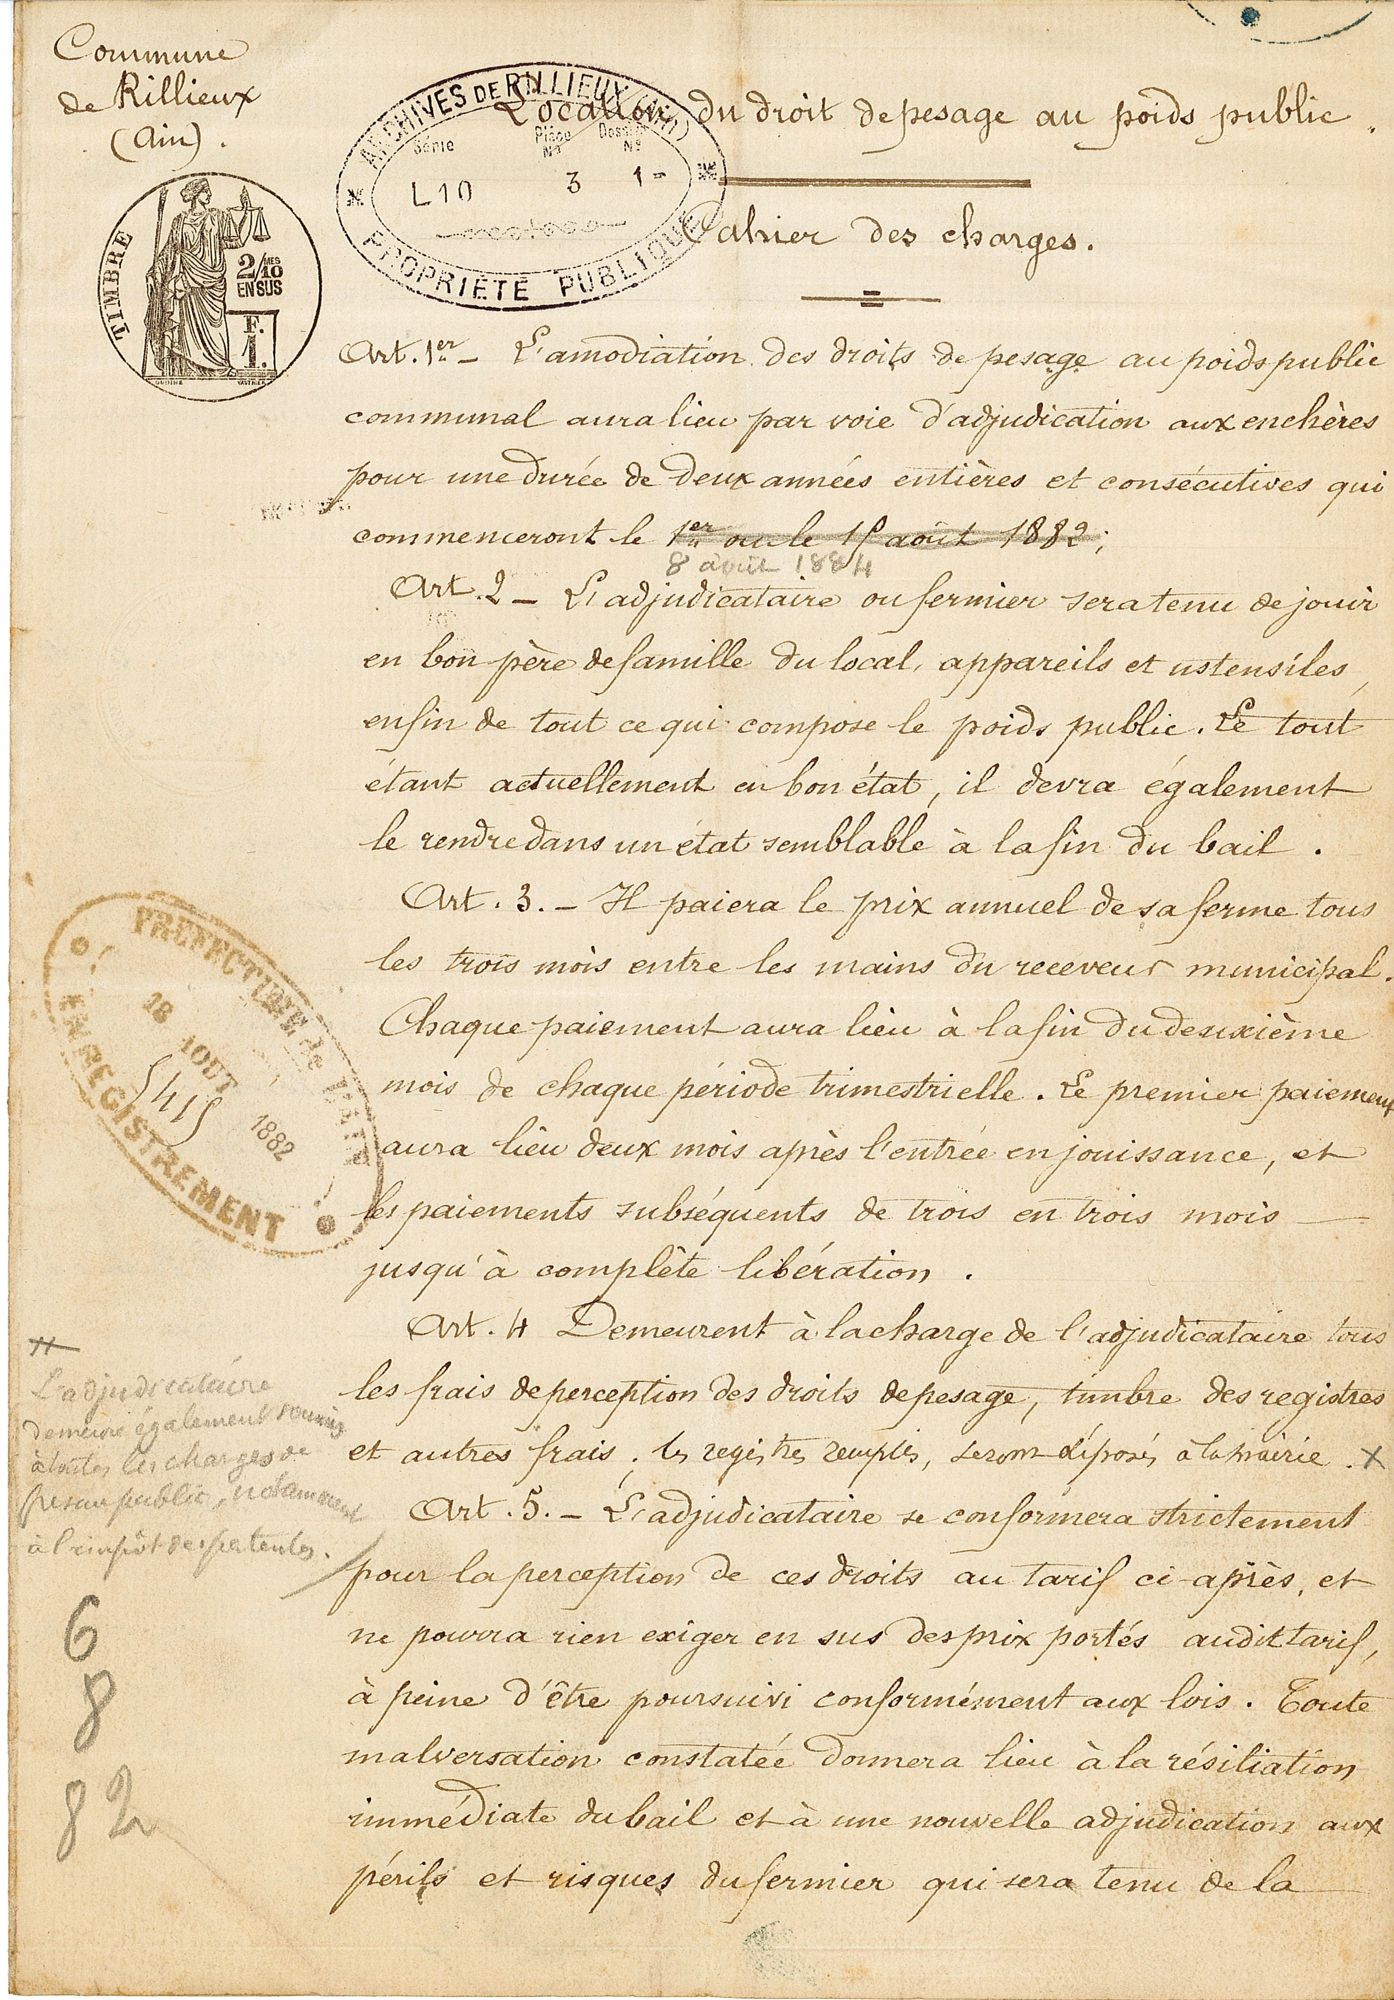 Commune
de Rillieux
(Ain).
Location du droit de pesage au poids public.
ARCHIVES DE RILLIEUX (AIN)
Série Pièce Nº Dossier Nº
L10 3 1-
PROPRIÉTÉ PUBLIQUE
Cahier des charges.
TIMBRE
2/10 MES
EN SUS
F.
1.
Art. 1er _ L'amodiation des droits de pesage au poids public
communal aura lieu par voie d'adjudication aux enchères
pour une durée de deux années entières et consécutives qui
commenceront le 1er ou le 15 août 1882;
8 août 1884
Art. 2 _ L'adjudicataire ou fermier sera tenu de jouir
en bon père de famille du local, appareils et ustensiles,
enfin de tout ce qui compose le poids public. Le tout
étant actuellement en bon état, il devra également
le rendre dans un état semblable à la fin du bail.
Art. 3. _ Il paiera le prix annuel de sa ferme tous
les trois mois entre les mains du receveur municipal.
Chaque paiement aura lieu à la fin du deuxième
mois de chaque période trimestrielle. Le premier paiement
aura lieu deux mois après l'entrée en jouissance, et
les paiements subséquents de trois en trois mois
jusqu'à complète libération.
PREFECTURE de L'AIN
18 AOUT 1882
5415
ENREGISTREMENT
Art. 4 Demeurent à la charge de l'adjudicataire tous
les frais de perception des droits de pesage, timbre des registres
et autres frais; les registres remplis, seront déposés à la mairie. X
X
L'adjudicataire
demeure également soumis
à toutes les charges de
pesau public, notamment
à l'impôt des patentes.
Art. 5. _ L'adjudicataire se conformera strictement
pour la perception de ces droits au tarif ci-après, et
ne pourra rien exiger en sus des prix portés audit tarif,
à peine d'être poursuivi conformément aux lois. Toute
malversation constatée donnera lieu à la résiliation
immédiate du bail et à une nouvelle adjudication aux
périls et risques du fermier qui sera tenu de la
6
8
82